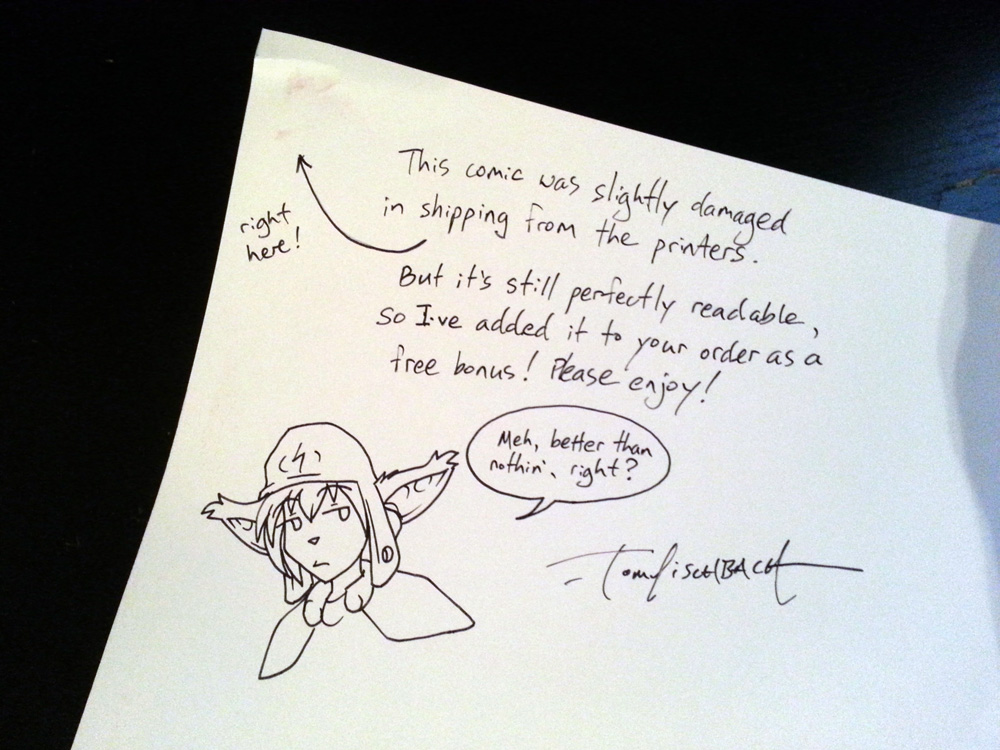 This comic was slightly damaged
in shipping from the printers.
right
here!
But it's still perfectly readable,
so I've added it to your order as a
free bonus! Please enjoy!
Meh, better than
nothin', right?
Tom Fischbach